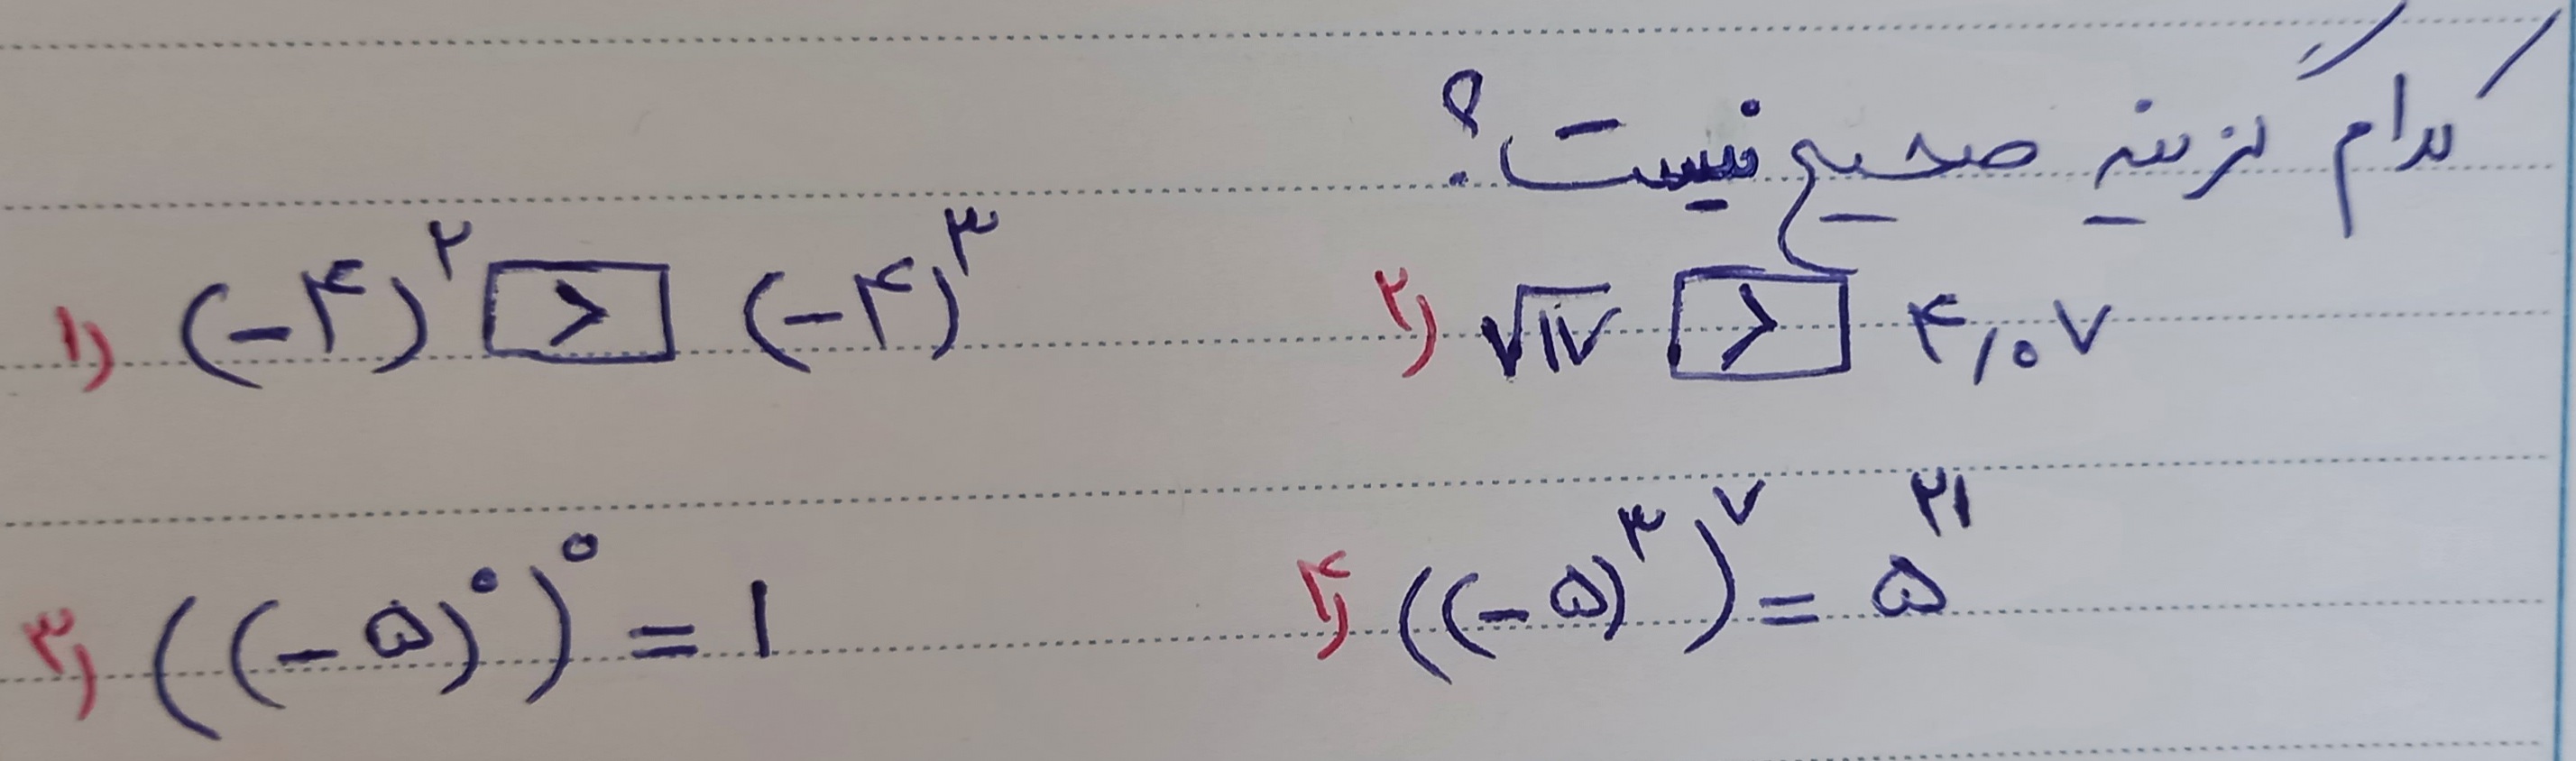 کدام گزینه صحیح نیست؟
۱) (-۴)^۲ > (-۴)^۳
۲) √۱۷ > ۴,۰۷
۳) ((-۵)^۰)^۰ = ۱
۴) ((-۵)^۳)^۷ = ۵^۲۱